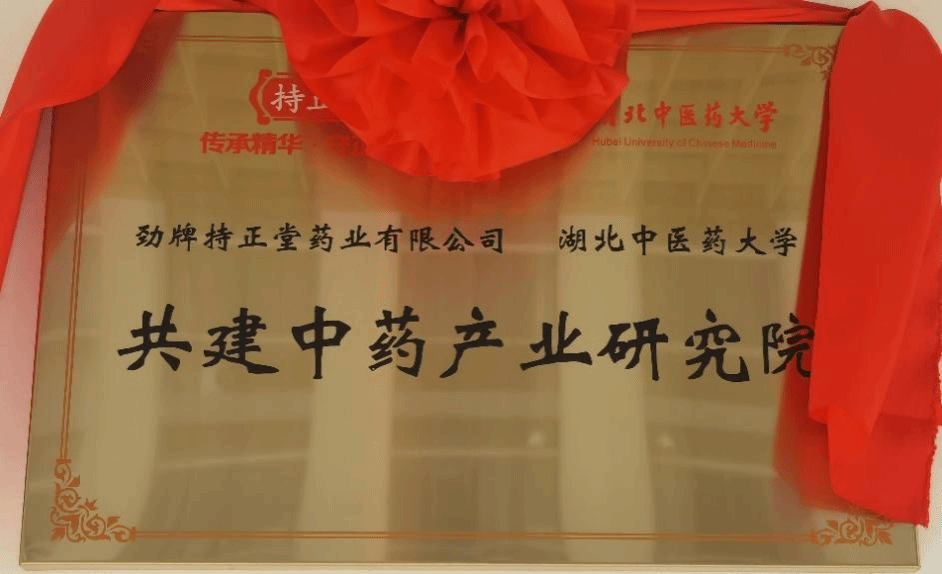 持正
湖北中医药大学
传承精华·
Hubei University of Chinese Medicine
劲牌持正堂药业有限公司 湖北中医药大学
共建中药产业研究院